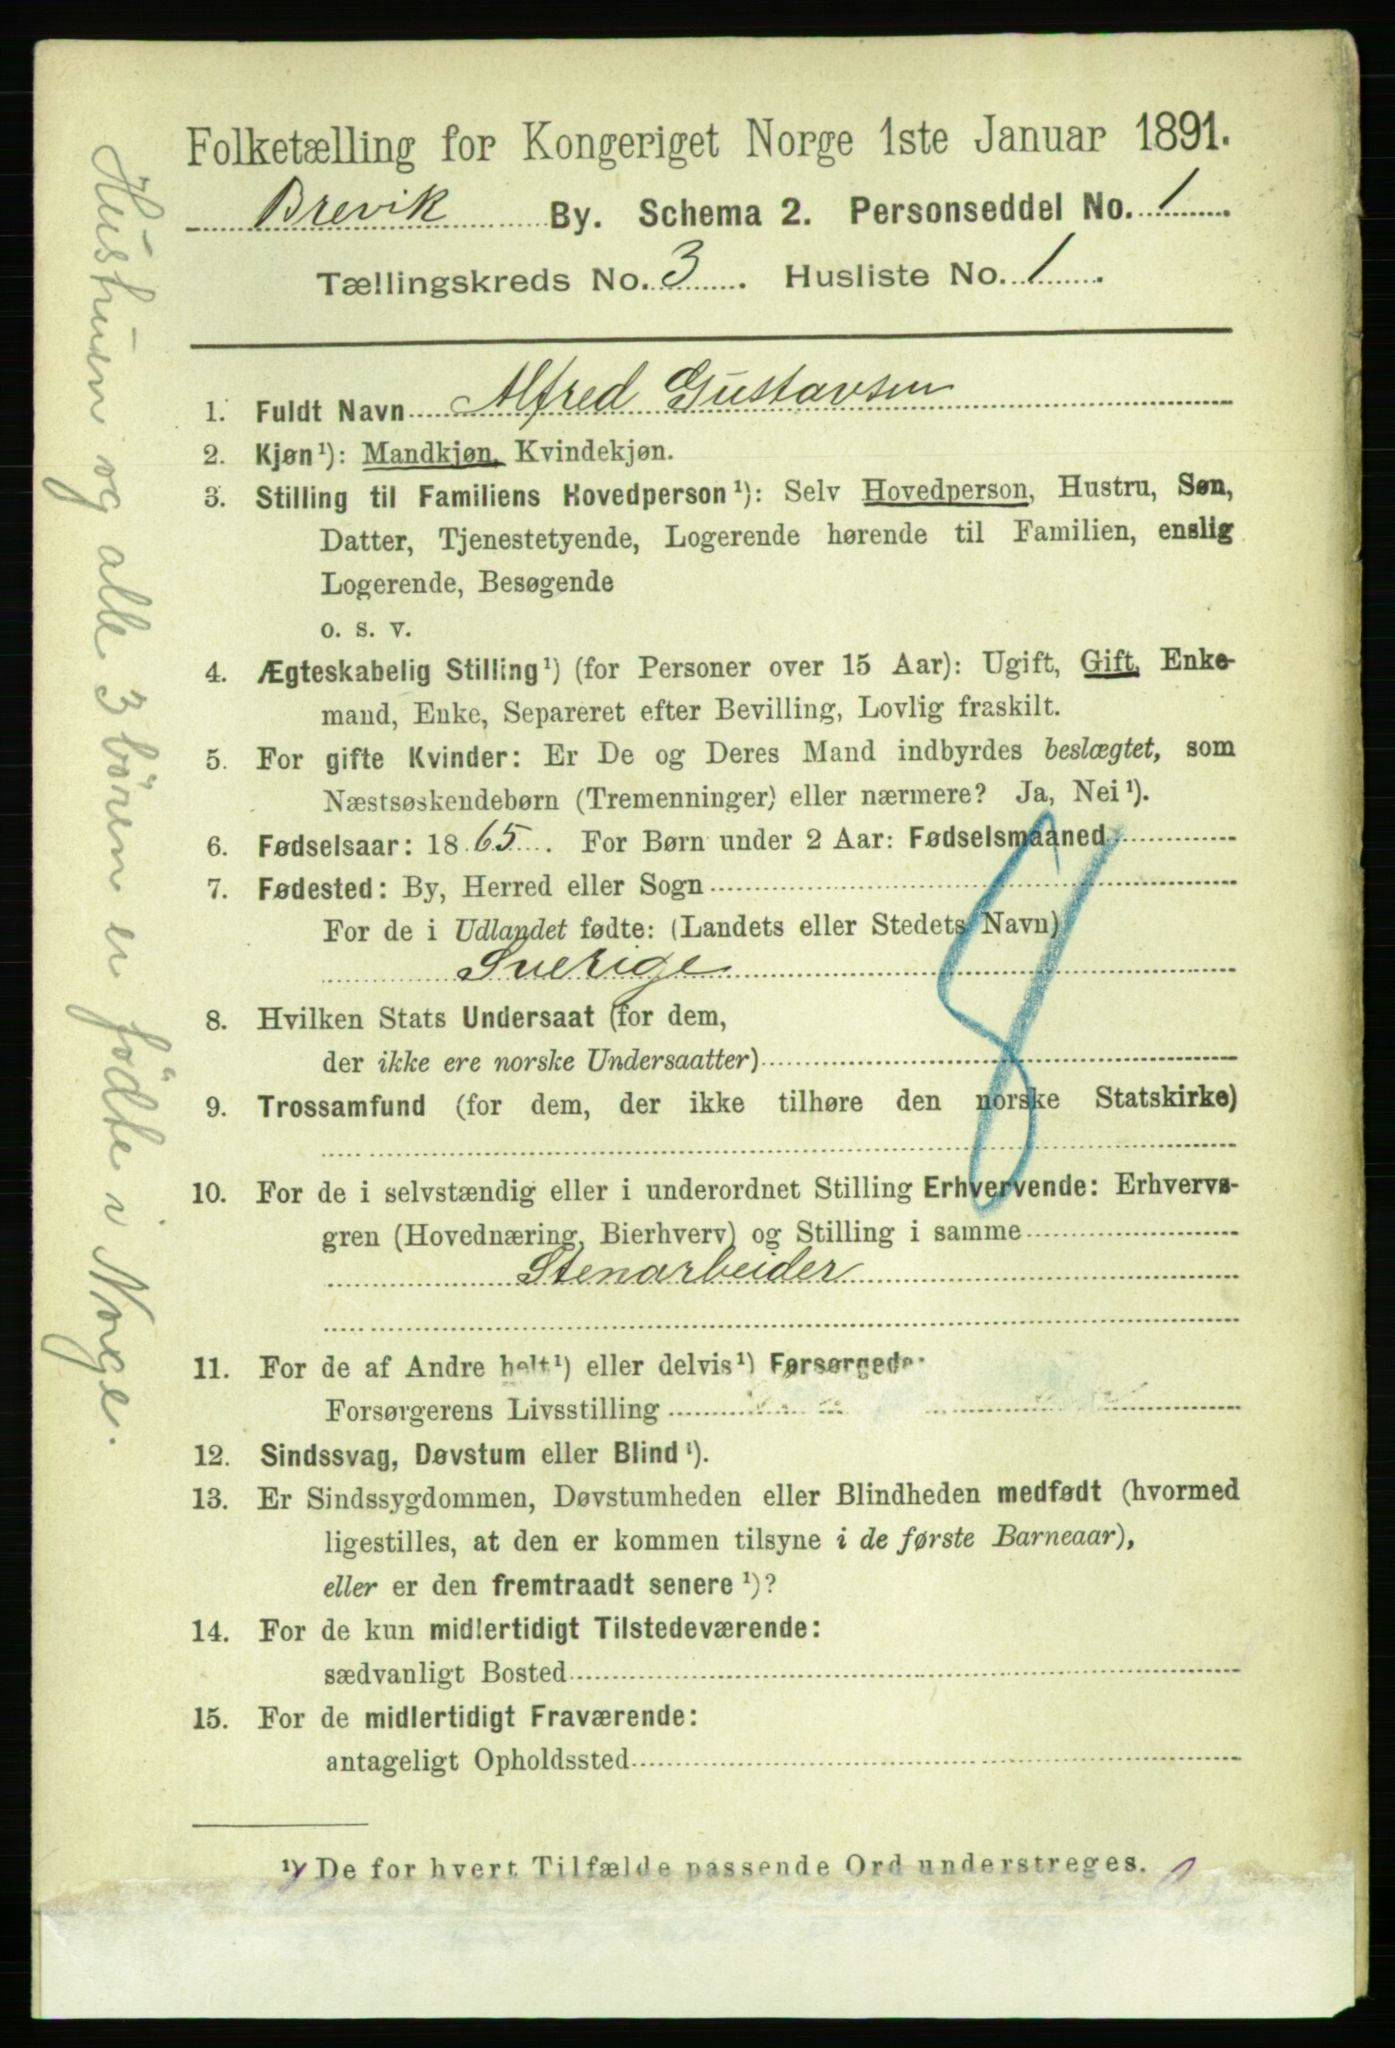 Folketælling for Kongeriget Norge 1ste Januar 1891.
Brevik By. Schema 2. Personseddel No. 1
Tællingskreds No. 3. Husliste No. 1.
1. Fuldt Navn Alfred Gustavsen
2. Kjøn¹): Mandkjøn, Kvindekjøn.
3. Stilling til Familiens Hovedperson¹): Selv Hovedperson, Hustru, Søn,
Datter, Tjenestetyende, Logerende hørende til Familien, enslig
Logerende, Besøgende
o. s. v.
4. Ægteskabelig Stilling¹) (for Personer over 15 Aar): Ugift, Gift, Enke-
mand, Enke, Separeret efter Bevilling, Lovlig fraskilt.
5. For gifte Kvinder: Er De og Deres Mand indbyrdes beslægtet, som
Næstsøskendebørn (Tremenninger) eller nærmere? Ja, Nei¹).
6. Fødselsaar: 1865. For Børn under 2 Aar: Fødselsmaaned
7. Fødested: By, Herred eller Sogn
For de i Udlandet fødte: (Landets eller Stedets Navn)
Sverige
8. Hvilken Stats Undersaat (for dem,
der ikke ere norske Undersaatter)
9. Trossamfund (for dem, der ikke tilhøre den norske Statskirke)
10. For de i selvstændig eller i underordnet Stilling Erhvervende: Erhvervs-
gren (Hovednæring, Bierhverv) og Stilling i samme
Stenarbeider
11. For de af Andre helt¹) eller delvis¹) Forsørgede:
Forsørgerens Livsstilling
12. Sindssvag, Døvstum eller Blind¹).
13. Er Sindssygdommen, Døvstumheden eller Blindheden medfødt (hvormed
ligestilles, at den er kommen tilsyne i de første Barneaar),
eller er den fremtraadt senere¹)?
14. For de kun midlertidigt Tilstedeværende:
sædvanligt Bosted
15. For de midlertidigt Fraværende:
antageligt Opholdssted
¹) De for hvert Tilfælde passende Ord understreges.
Hustruen og alle 3 børen er fødte i Norge.